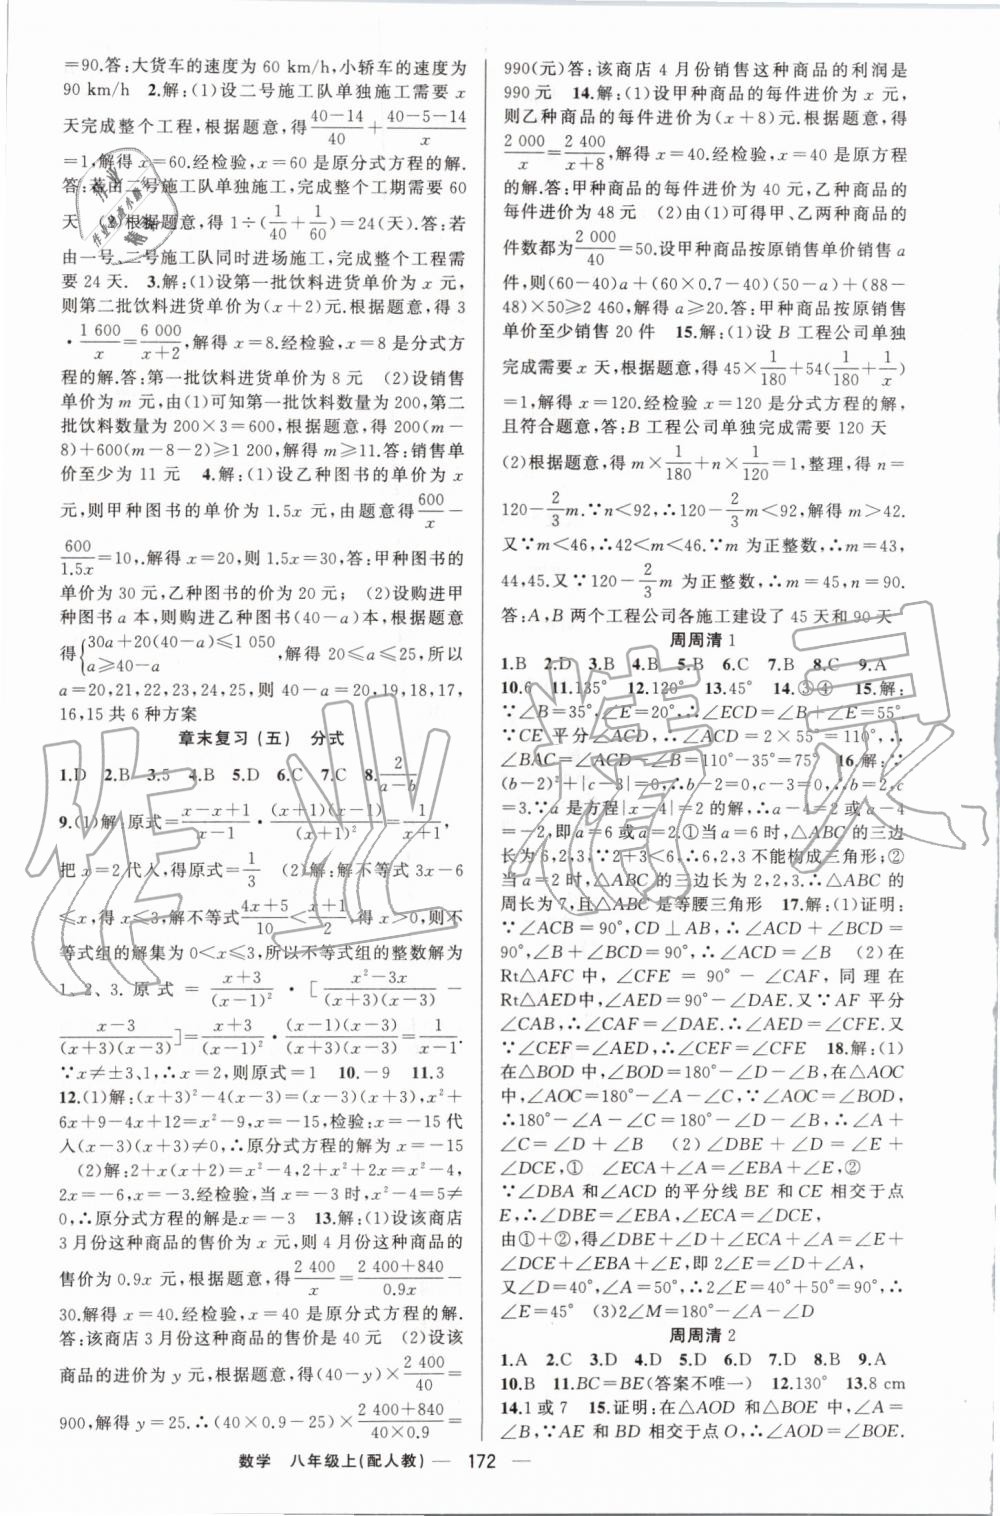 =90.答:大货车的速度为 60 km/h,小轿车的速度为
90 km/h 2.解:(1)设二号施工队单独施工需要 x
天完成整个工程,根据题意,得(40-14)/40+(40-5-14)/x
=1,解得 x=60.经检验,x=60 是原分式方程的解.
答:若由二号施工队单独施工,完成整个工期需要 60
天 (2)根据题意,得 1÷(1/40+1/60)=24(天).答:若
由一号、二号施工队同时进场施工,完成整个工程需
要 24 天. 3.解:(1)设第一批饮料进货单价为 x 元,
则第二批饮料进货单价为(x+2)元.根据题意,得 3
·1 600/x=6 000/(x+2),解得 x=8.经检验,x=8 是分式方
程的解.答:第一批饮料进货单价为 8 元 (2)设销售
单价为 m 元,由(1)可知第一批饮料数量为 200,第二
批饮料数量为 200×3=600,根据题意,得 200(m-
8)+600(m-8-2)≥1 200,解得 m≥11.答:销售单
价至少为 11 元 4.解:(1)设乙种图书的单价为 x
元,则甲种图书的单价为 1.5x 元,由题意得600/x-
600/1.5x=10,,解得 x=20,则 1.5x=30,答:甲种图书的
单价为 30 元,乙种图书的价为 20 元; (2)设购进甲
种图书 a 本,则购进乙种图书(40-a)本,根据题意
得{30a+20(40-a)≤1 050,a≥40-a,解得 20≤a≤25,所以
a=20,21,22,23,24,25,则 40-a=20,19,18,17,
16,15 共 6 种方案
章末复习(五) 分式
1.D 2.B 3.5 4.B 5.D 6.C 7.C 8.2/(a-b)
9.(1)解:原式=(x-x+1)/(x-1)·(x+1)(x-1)/(x+1)²=1/(x+1),
把 x=2代入,得原式=1/3 (2)解:解不等式 3x-6
≤x,得 x≤3,解不等式(4x+5)/10<(x+1)/2,得 x>0,则不
等式组的解集为 0<x≤3,所以不等式组的整数解为
1、2、3.原式=(x+3)/(x-1)²·[(x²-3x)/(x+3)(x-3)-
(x-3)/(x+3)(x-3)]=(x+3)/(x-1)²·(x-1)(x-3)/(x+3)(x-3)=1/(x-1).
∵x≠±3、1,∴x=2,则原式=1 10.-9 11.3
12.(1)解:(x+3)²-4(x-3)=(x-3)(x+3),x²+
6x+9-4x+12=x²-9,x=-15,检验:x=-15 代
入(x-3)(x+3)≠0,∴原分式方程的解为 x=-15
(2)解:2+x(x+2)=x²-4,2+x²+2x=x²-4,
2x=-6,x=-3.经检验,当 x=-3 时,(x+2)(x-2)≠
0,∴原分式方程的解是x=-3 13.解:(1)设该商店
3 月份这种商品的售价为 x 元,则 4 月份这种商品的
售价为 0.9x 元.根据题意,得2 400/x=(2 400+840)/0.9x-
30.解得 x=40.经检验,x=40 是原分式方程的解.
答:该商店 3 月份这种商品的售价是 40 元 (2)设该
商品的进价为 y 元,根据题意,得(40-y)×2 400/40=
900,解得 y=25.∴(40×0.9-25)×(2 400+840)/(40×0.9)=
990(元)答:该商店 4 月份销售这种商品的利润是
990 元 14.解:(1)设甲种商品的每件进价为 x 元,
则乙种商品的每件进价为(x+8)元.根据题意,得
2 000/x=2 400/(x+8),解得 x=40.经检验,x=40 是原方程
的解.答:甲种商品的每件进价为 40 元,乙种商品的
每件进价为 48 元 (2)由(1)可得甲、乙两种商品的
件数都为2 000/40=50.设甲种商品按原销售单价销售 a
件,则(60-40)a+(60×0.7-40)(50-a)+(88-
48)×50≥2 460,解得 a≥20.答:甲种商品按原销售
单价至少销售 20 件 15.解:(1)设 B 工程公司单独
完成需要 x 天,根据题意,得 45×1/180+54(1/180+1/x)
=1,解得 x=120.经检验 x=120 是分式方程的解,
且符合题意,答:B 工程公司单独完成需要 120 天
(2)根据题意,得 m×1/180+n×1/120=1,整理,得 n=
120-2/3m.∵n<92,∴120-2/3m<92,解得 m>42.
又∵m<46,∴42<m<46.∵m 为正整数,∴m=43,
44,45.又∵120-2/3m 为正整数,∴m=45,n=90.
答:A,B 两个工程公司各施工建设了 45 天和 90 天
周周清 1
1.B 2.D 3.B 4.B 5.B 6.C 7.B 8.C 9.A
10.6 11.135° 12.120° 13.45° 14.③④ 15.解:
∵∠B=35°,∠E=20°,∴∠ECD=∠B+∠E=55°.
∵CE 平分∠ACD,∴∠ACD=2×55°=110°,∴
∠BAC=∠ACD-∠B=110°-35°=75° 16.解:∵
(b-2)²+|c-3|=0,∴b-2=0,c-3=0,b=2,c=
3.∵a 是方程|x-4|=2 的解,∴a-4=2 或 a-4
=-2,即 a=6 或 a=2.①当 a=6 时,△ABC 的三边
长为 6,2,3,∵2+3<6,∴6,2,3 不能构成三角形;②
当 a=2 时,△ABC 的三边长为 2,2,3.∴△ABC 的
周长为 7,且△ABC 是等腰三角形 17.解:(1)证明:
∵∠ACB=90°,CD⊥AB,∴∠ACD+∠BCD=
90°,∠B+∠BCD=90°,∴∠ACD=∠B (2)在
Rt△AFC 中,∠CFE=90°-∠CAF,同理在
Rt△AED 中,∠AED=90°-∠DAE.又∵AF 平分
∠CAB,∴∠CAF=∠DAE.∴∠AED=∠CFE.又
∵∠CEF=∠AED,∴∠CEF=∠CFE 18.解:(1)
在△BOD 中,∠BOD=180°-∠D-∠B,在△AOC
中,∠AOC=180°-∠A-∠C,∵∠AOC=∠BOD,
∴180°-∠A-∠C=180°-∠D-∠B,∴∠A+
∠C=∠D+∠B (2)∠DBE+∠D=∠E+
∠DCE,① ∠ECA+∠A=∠EBA+∠E,②
∵∠DBA 和∠ACD 的平分线 BE 和 CE 相交于点
E,∴∠DBE=∠EBA,∠ECA=∠DCE,
由①+②,得∠DBE+∠D+∠ECA+∠A=∠E+
∠DCE+∠EBA+∠E,即 2∠E=∠D+∠A,
又∠D=40°,∠A=50°,∴2∠E=40°+50°=90°,∴
∠E=45° (3)2∠M=180°-∠A-∠D
周周清 2
1.A 2.C 3.D 4.D 5.D 6.D 7.D 8.D 9.A
10.B 11.BC=BE(答案不唯一) 12.130° 13.8 cm
14.1 或 7 15.证明:在△AOD 和△BOE 中,∵
AE 和 BD 相交于点 O,∴∠AOD=∠BOE.
数学 八年级上(配人教) — 172 —
作业精灵